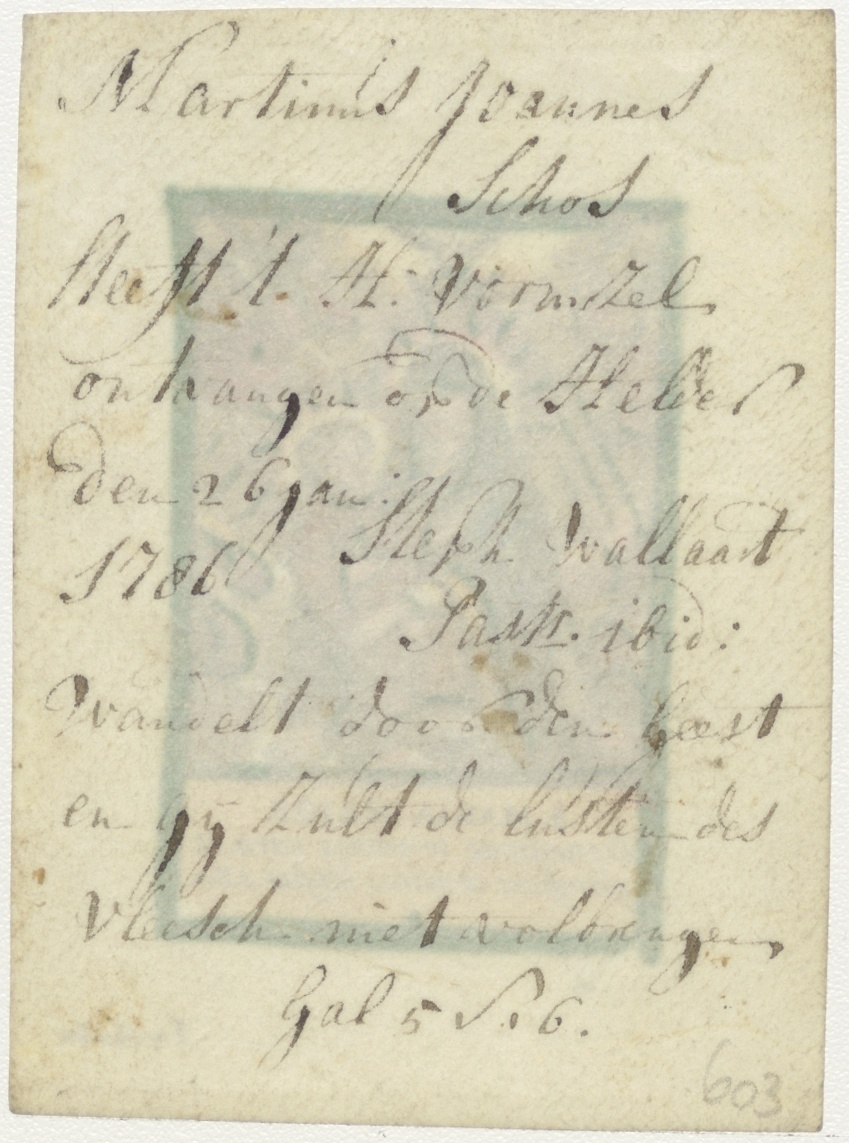 Martinus Joannes
Schos
Heeft 't H: Vormzel
ontvangen op de Helder
den 26 jan:
1786 Steph Wallaart
Past: ibid:
Wandelt door den geest
en gy Zult de lusten des
vleesch niet volbrengen
Gal 5 v. 6.
603